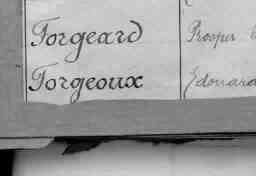 Forgeard Prosper
Forgeoux Edouard